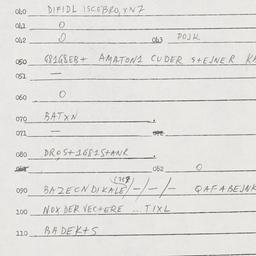 040 DIFIDL ISCEBRO, XNZ
041 O
042 O 043 POJK
050 AMATON1 CUDER STEJNER
051 —
060 O
070 BATXN
071 —
080 DROST1681STANR
082 O
090 BAZECNDIKALE /-/-/- QAFABEJNK
100 NOX DER VECTERE ... TIXL
110 BADEKTS